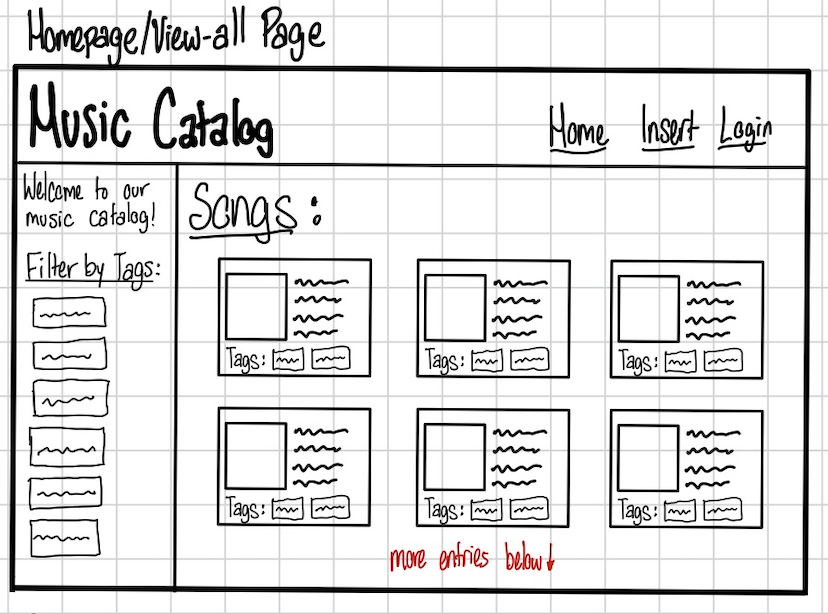 Homepage/View-all Page
Music Catalog
Home Insert Login
Welcome to our
music catalog!
Filter by Tags:
Songs:
Tags:
Tags:
Tags:
Tags:
Tags:
Tags:
more entries below↓